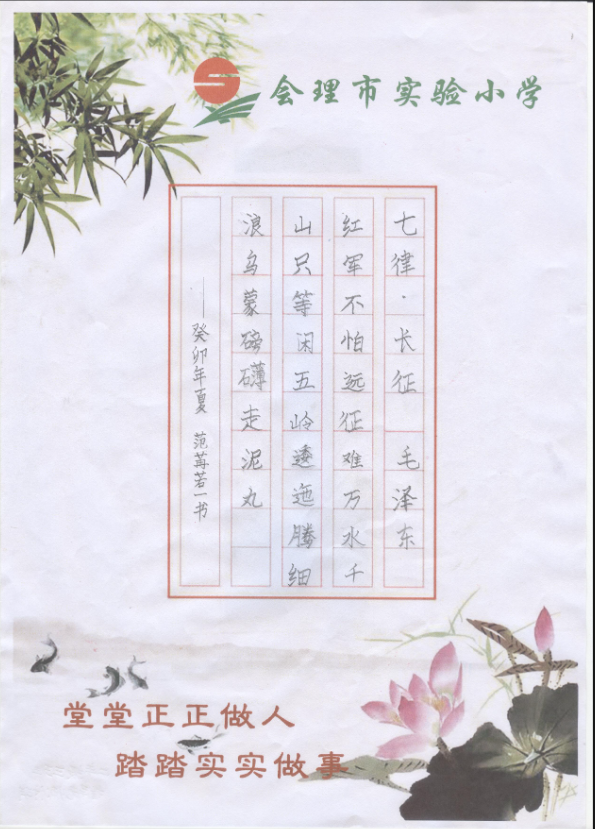 会理市实验小学
七律·长征 毛泽东
红军不怕远征难万水千
山只等闲五岭逶迤腾细
浪乌蒙磅礴走泥丸
——癸卯年夏 范苒若一书
堂堂正正做人
踏踏实实做事